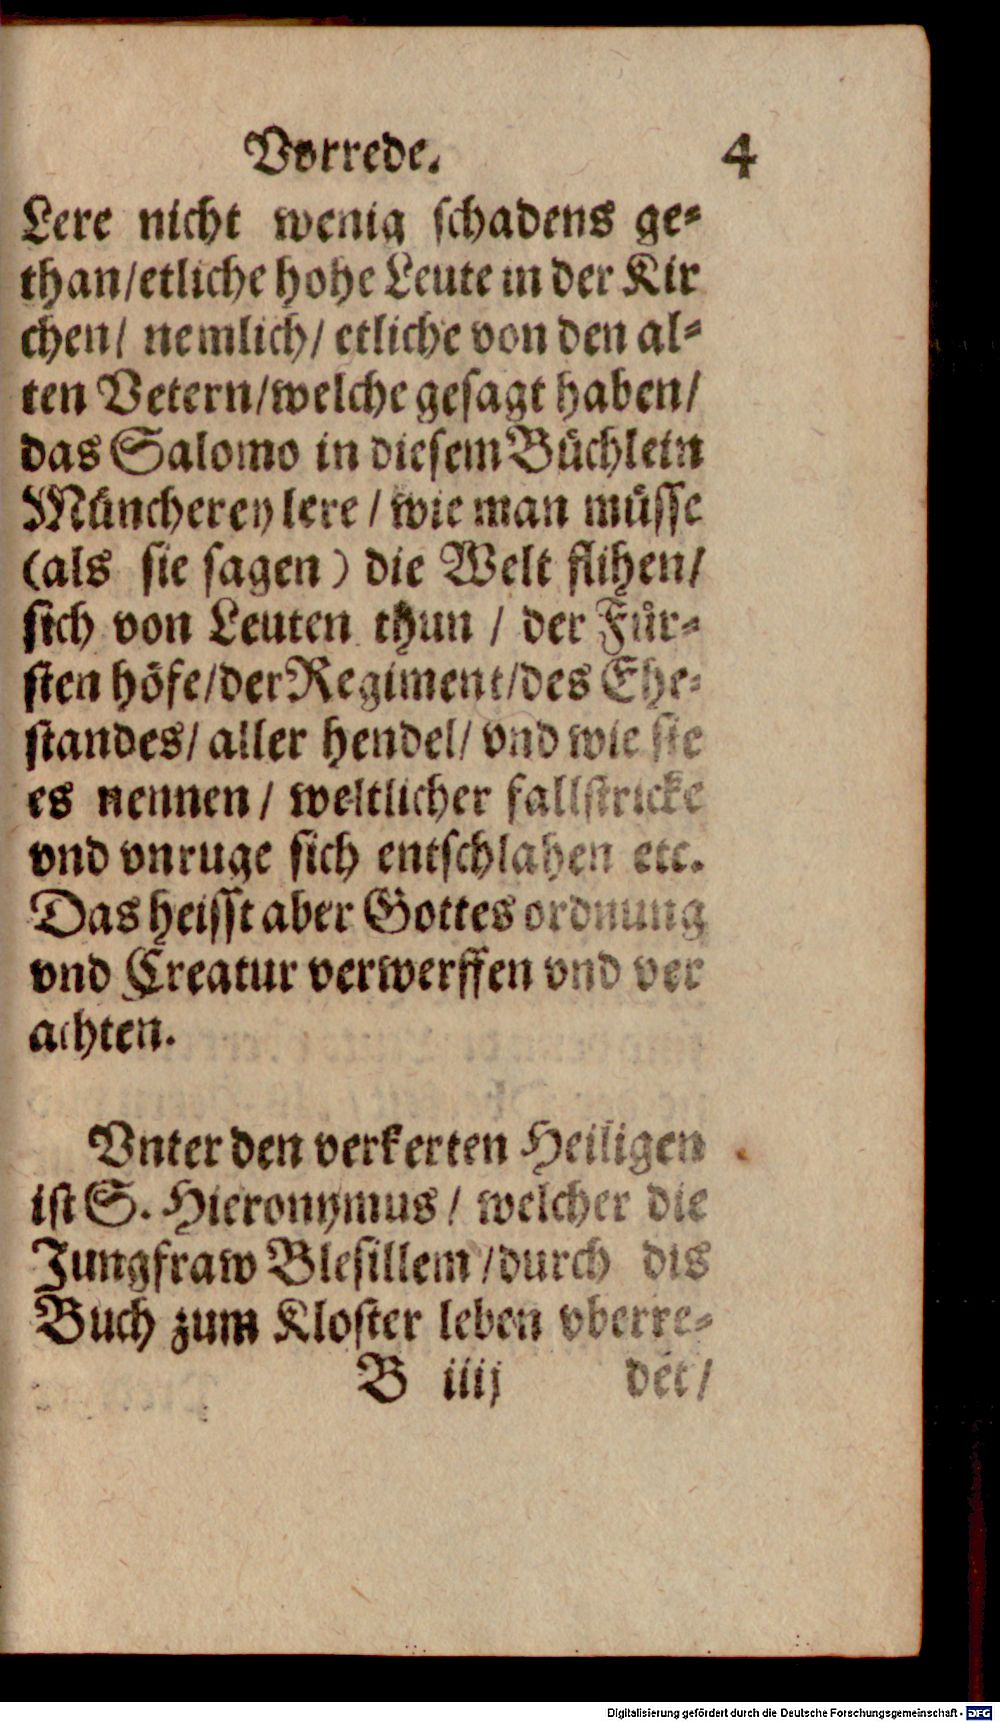 Vorrede. 4
Lere nicht wenig schadens ge⸗
than/etliche hohe Leute in der Kir
chen/ nemlich/ etliche von den al⸗
ten Vetern/welche gesagt haben/
das Salomo in diesem Büchlein
Müncherey lere / wie man müsse
(als sie sagen) die Welt flihen/
sich von Leuten thun / der Für⸗
sten höfe/der Regiment/des Ehe⸗
standes/ aller hendel/ vnd wie sie
es nennen / weltlicher fallstricke
vnd vnruge sich entschlahen etc.
Das heisst aber Gottes ordnung
vnd Creatur verwerffen vnd ver
achten.
Vnter den verkerten Heiligen
ist S. Hieronymus / welcher die
Jungfraw Blesillem /durch dis
Buch zum Kloster leben vberre⸗
B iiij det/
Digitalisierung gefördert durch die Deutsche Forschungsgemeinschaft - DFG